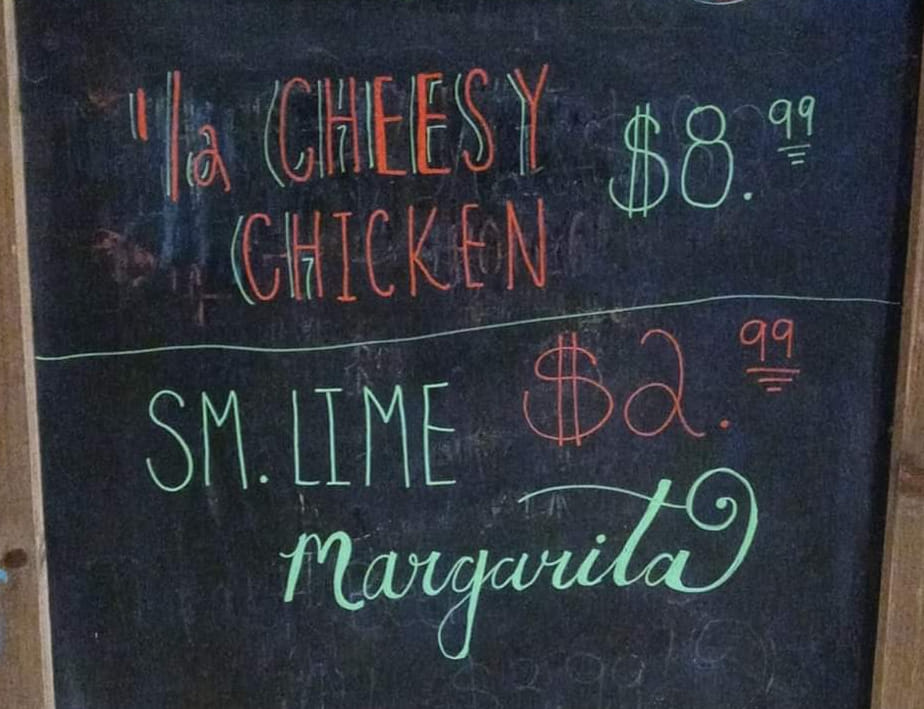 1/2 CHEESY $8.99
CHICKEN
SM. LIME $2.99
Margarita